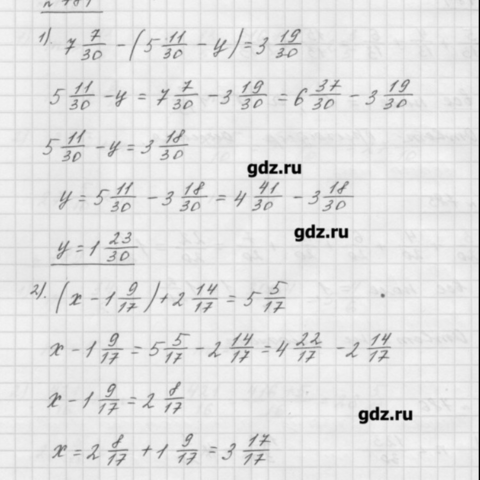 1) 7 7/30 - (5 11/30 - y) = 3 19/30
5 11/30 - y = 7 7/30 - 3 19/30 = 6 37/30 - 3 19/30
5 11/30 - y = 3 18/30
gdz.ru
y = 5 11/30 - 3 18/30 = 4 41/30 - 3 18/30
gdz.ru
y = 1 23/30
2). (x - 1 9/17) + 2 14/17 = 5 5/17
x - 1 9/17 = 5 5/17 - 2 14/17 = 4 22/17 - 2 14/17
x - 1 9/17 = 2 8/17
gdz.ru
x = 2 8/17 + 1 9/17 = 3 17/17